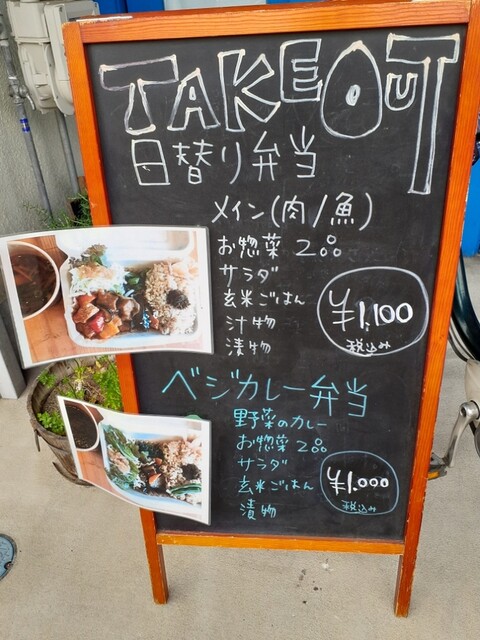 TAKEOUT
日替り弁当
メイン(肉/魚)
お惣菜 2品
サラダ
玄米ごはん
汁物
漬物
¥1,100
税込み
ベジカレー弁当
野菜のカレー
お惣菜 2品
サラダ
玄米ごはん
漬物
¥1,000
税込み